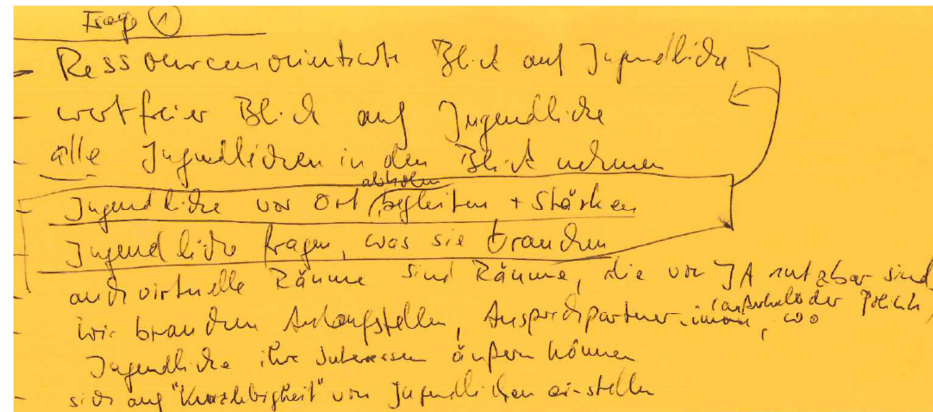 Frage ①
- Ressourcenorientierte Blick auf Jugendliche
- wertfreier Blick auf Jugendliche
- alle Jugendlichen in den Blick nehmen
- Jugendliche vor Ort abholen, begleiten + stärken
- Jugendliche fragen, was sie brauchen
- auch virtuelle Räume sind Räume, die von JA nutzbar sind
- wir brauchen Anlaufstellen, Ansprechpartner innen, (außerhalb der Politik, wo
Jugendliche ihre Interessen äußern können
- sich auf "Kurzlebigkeit" von Jugendlichen einstellen